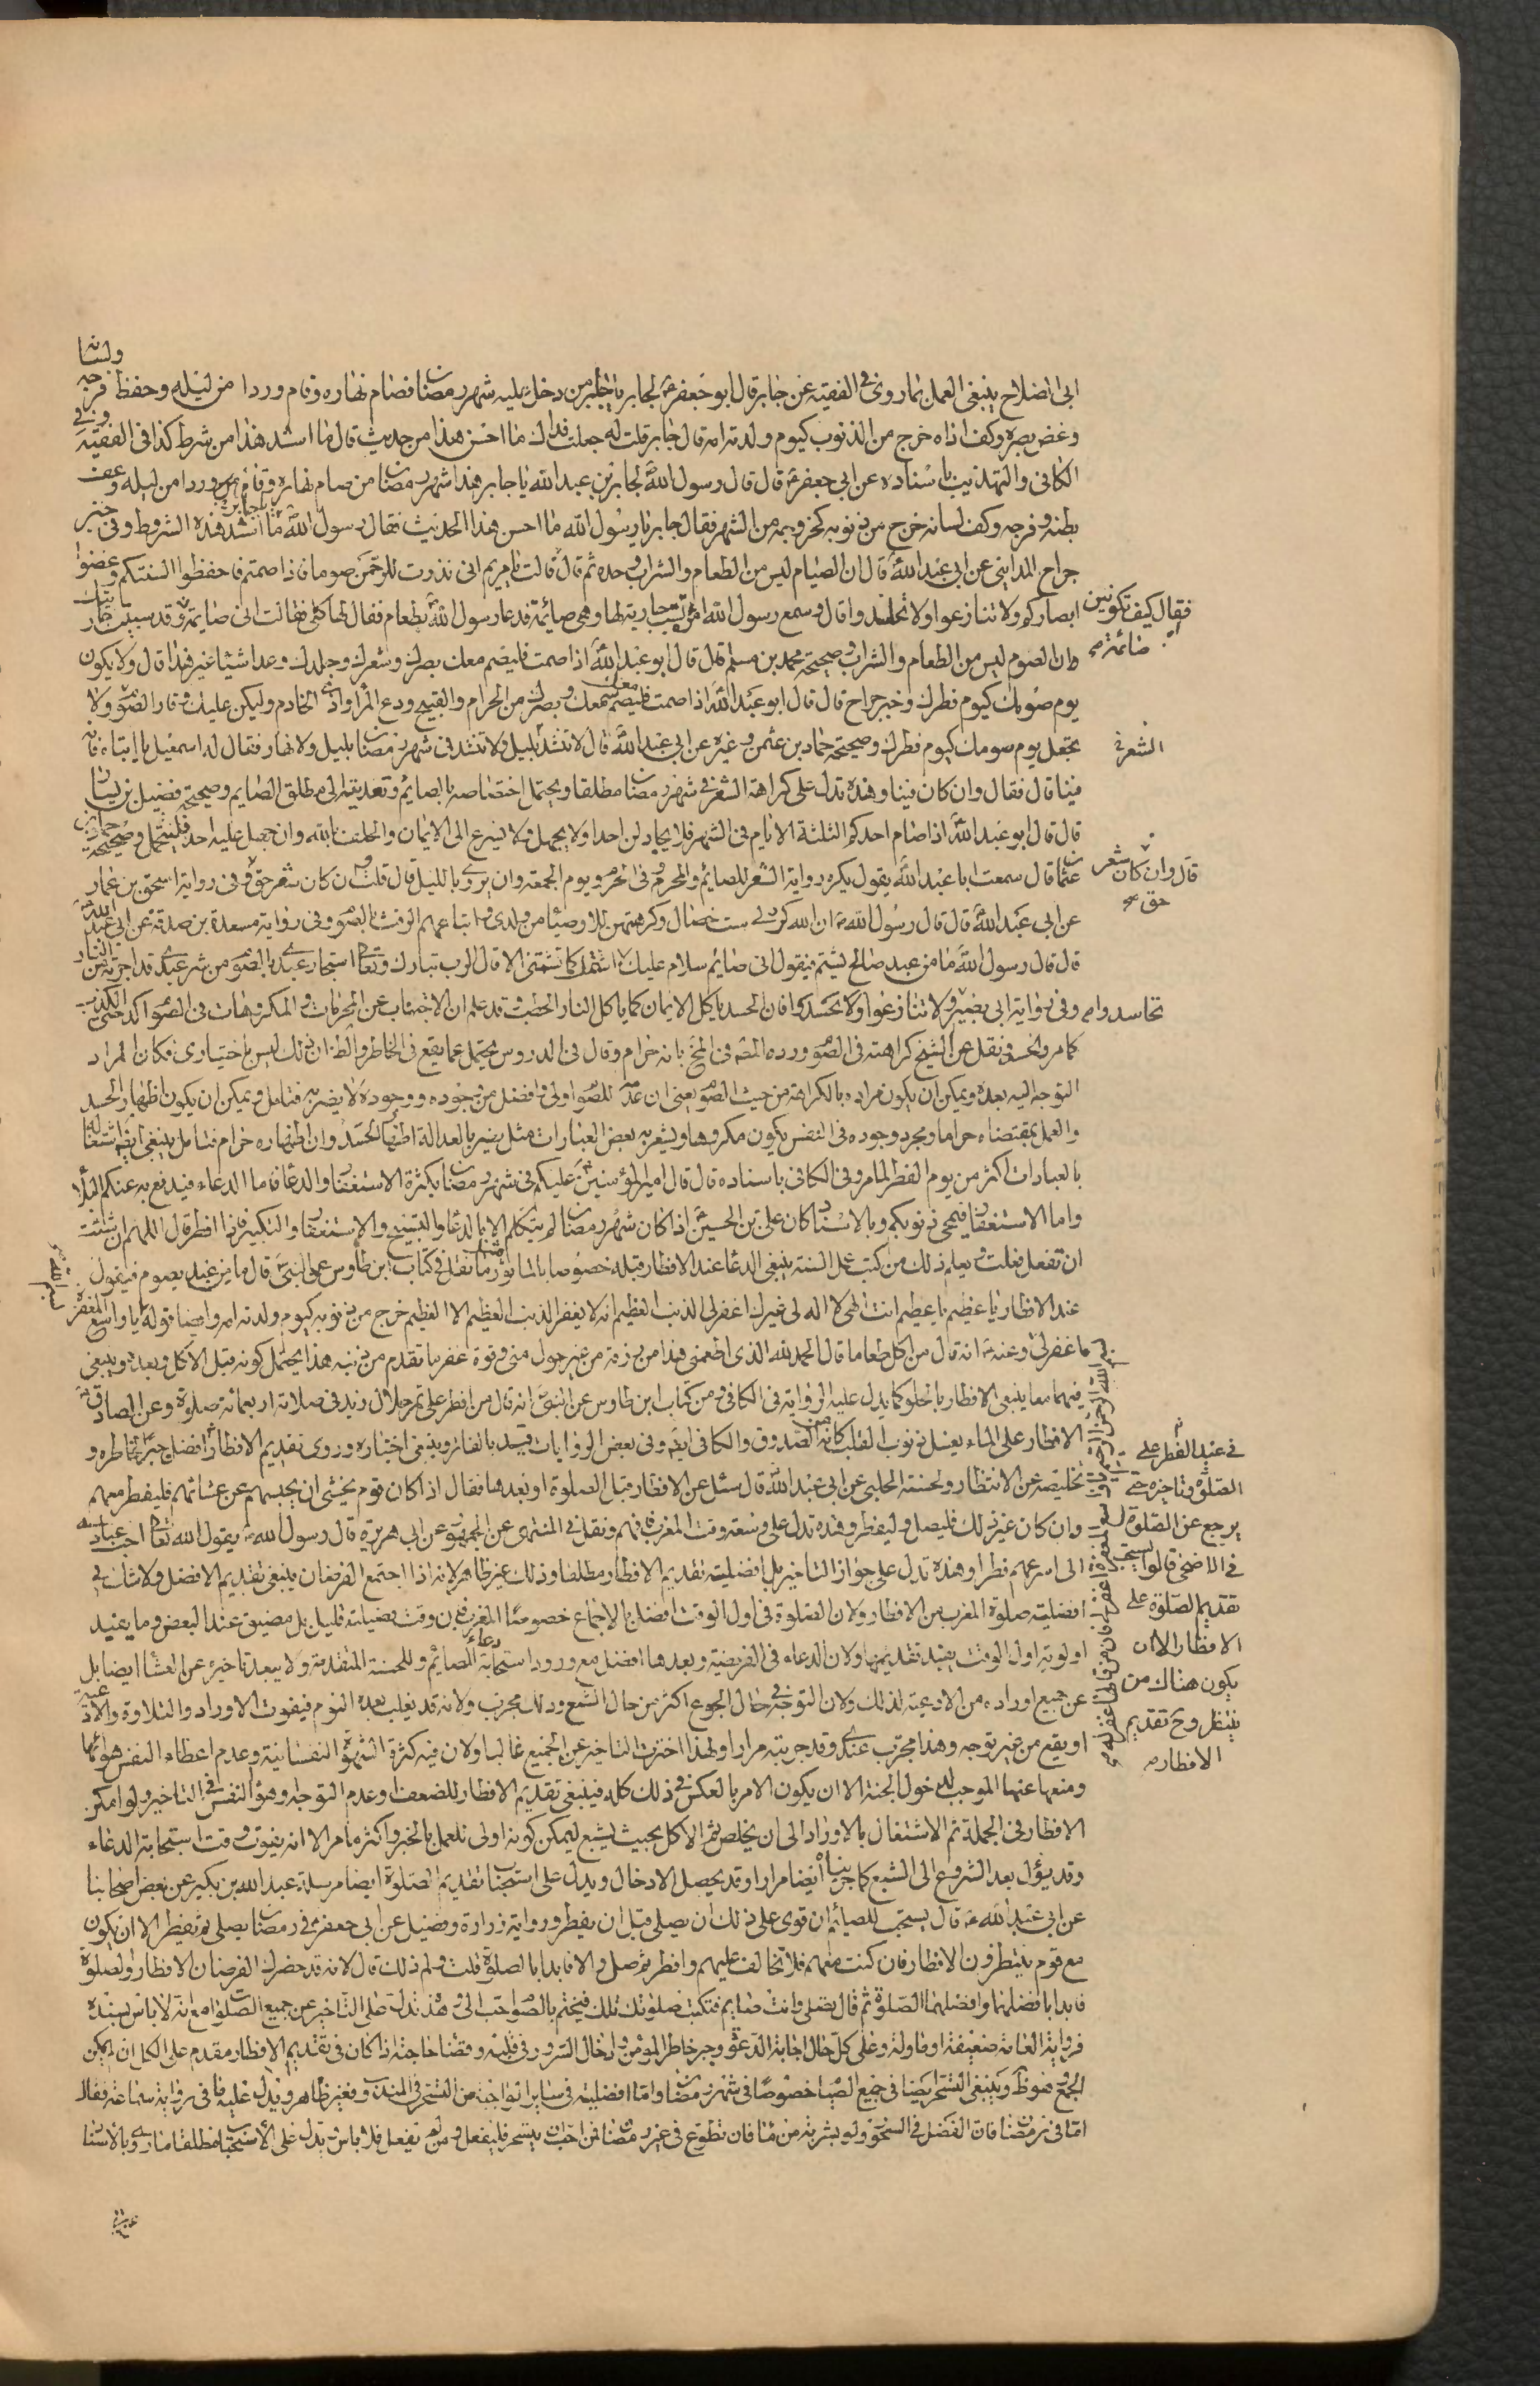 ولسانه
الى اصلاح ينبغي العمل بما روى في الفقيه عن جابر قال ابو جعفر ع لجابر يا جابر من دخل عليه شهر رمضان فصام نهاره وقام وردا من ليله وحفظ فرجه
وغض بصره وكف اذاه خرج من الذنوب كيوم ولدته امه قال جابر قلت له جعلت فداك ما احسن هذا من حديث قال ما اشد هذا من شرط كذا في الفقيه وفي
الكافي والتهذيب باسناده عن ابي جعفر ع قال قال رسول الله لجابر بن عبد الله يا جابر هذا شهر رمضان من صام نهاره وقام وردا من ليله وعف
بطنه وفرجه وكف لسانه خرج من ذنوبه كخروجه من الشهر فقال جابر يا رسول الله ما احسن هذا الحديث فقال رسول الله يا جابر ما اشد هذه الشروط وفي خبر
جراح المدايني عن ابي عبد الله قال ان الصيام ليس من الطعام والشراب وحده ثم قال قالت مريم اني نذرت للرحمن صوما فاذا صمتم فاحفظوا السنتكم وغضوا
ابصاركم ولا تنازعوا ولا تحاسدوا قال وسمع رسول الله امراة تسب جارية لها وهي صائمة فدعا رسول الله بطعام فقال لها كلي فقالت اني صايمة وقد سببت جاريتك
فقال كيف تكونين
صائمة صح
وان الصوم ليس من الطعام والشراب وصحيحة محمد بن مسلم قال قال ابو عبد الله اذا صمت فليصم معك بصرك وشعرك وجلدك وعد اشيا غير هذا قال ولا يكون
يوم صومك كيوم فطرك وخبر جراح قال قال ابو عبد الله اذا صمت فليصم معك سمعك وبصرك من الحرام والقبيح ودع المراء واذى الخادم وليكن عليك وقار الصوم ولا
تجعل يوم صومك كيوم فطرك وصحيحة حماد بن عثمن وغيره عن ابي عبد الله قال لا تنشد بليل ولا تنشد في شهر رمضان بليل ولا نهار فقال له اسمعيل يا ابتاه فانه
الشعر في
فينا قال فقال وان كان فينا وهذه تدل على كراهة الشعر في شهر رمضان مطلقا ويحتمل اختصاصه بالصايم وتعديته الى مطلق الصايم وصحيحة فضيل بن يسار
قال قال ابو عبد الله اذا صام احدكم الثلثة الايام في الشهر فلا يجادلن احدا ولا يجهل ولا يسرع الى الايمان والحلف بالله وان جهل عليه احد فليتحمل وصحيحة حماد بن
عثمان قال سمعت ابا عبد الله يقول يكره رواية الشعر للصائم والمحرم وفي الحرم ويوم الجمعة وان يروى بالليل قال قلت وان كان شعر حق وفي رواية اسحق بن عمار
قال وان كان شعر
حق صح
عن ابي عبد الله قال قال رسول الله ان الله كره لي ست خصال وكرهتهن للاوصياء من ولدي واتباعهم الرفث في الصوم وفي رواية مسعدة بن صدقة عن ابي عبد الله
قال قال رسول الله ما من عبد صالح يشتم فيقول اني صايم سلام عليك لا اشتمك كما تشتمني الا قال الرب تبارك وتعالى استجار عبدي بالصوم من شر عبدي قد اجرته من النار
وفي رواية ابي بصير ولا تنازعوا ولا تحسدوا فان الحسد ياكل الايمان كما ياكل النار الحطب وقد علم ان الاجتناب عن المحرمات والمكروهات في الصوم اكد حتى الكذب
تحاسدوا صح
كما مر والحسد ونقل عن الشيخ كراهته في الصوم ورده المص في المنح بانه حرام وقال في الدروس يحتمل عما يقع في الخاطر والظن ان ذلك ليس باختياري فكان المراد
التوجه اليه بعده ويمكن ان يكون مراده بالكراهة من حيث الصوم يعني ان عدمه للصوم اولى وافضل من وجوده ووجوده لا يضر به فتامل ويمكن ان يكون اظهار الحسد
والعمل بمقتضاه حراما ومجرد وجوده في النفس يكون مكروها ويشعر به بعض العبارات مثل يضر بالعدالة اظهار الحسد وان اظهاره حرام فتامل ينبغي ايضا اشتغاله
بالعبادات اكثر من يوم الفطر لما مر وفي الكافي باسناده قال قال امير المؤمنين عليكم في شهر رمضان بكثرة الاستغفار والدعا فاما الدعاء فيدفع به عنكم البلاء
واما الاستغفار فيمحى ذنوبكم وبالاسناد كان علي بن الحسين اذا كان شهر رمضان لم يتكلم الا بالدعا والتسبيح والاستغفار والتكبير فاذا افطر قال اللهم ان شئت
ان تفعل فعلت ويعلم ذلك من كتب عمل السنة ينبغي الدعا عند الافطار قبله خصوصا بالماثور مثل ما نقل في كتاب ابن طاوس عن النبي قال ما من عبد يصوم فيقول
عند الافطار يا عظيم يا عظيم انت الهي لا اله لي غيرك اغفر لي الذنب العظيم انه لا يغفر الذنب العظيم الا العظيم خرج من ذنوبه كيوم ولدته امه وايضا قوله يا واسع المغفرة
اغفر لي وعنه ع انه قال من اكل طعاما قال الحمد لله الذي اطعمني هذا من رزقه من غير حول مني وقوة غفر ما تقدم من ذنبه هذا يحتمل كونه قبل الاكل وبعده وينبغي
فيهما معا ينبغي الافطار بالحلو كما يدل عليه الرواية في الكافي ومن كتاب ابن طاوس عن النبي انه قال من افطر على تمر حلال زيد في صلاته اربعمائة صلوة وعن الصادق
الافطار على الماء يغسل ذنوب القلب كانه من الصدوق والكافي ايضا وفي بعض الروايات قيد بالفاتر وينبغي اختياره وروى تقديم الافطار افضل جبرا لخاطره و
تخليصه عن الانتظار ولحسنة الحلبي عن ابي عبد الله قال سئل عن الافطار قبل الصلوة او بعدها فقال اذا كان قوم يخشى ان يحبسهم عن عشائهم فليفطر معهم
وان كان غير ذلك فليصل وليفطر وهذه تدل على وسعة وقت المغرب فافهم ونقل في المنتهى عن الجمهور عن ابي هريرة قال رسول الله يقول الله تعالى احب عبادي
الى اسرعهم فطرا وهذه تدل على جواز التاخير بل افضلية تقديم الافطار مطلقا وذلك غير ظاهر لانه اذا اجتمع الفرضان ينبغي تقديم الافضل ولا شك في
افضلية صلوة المغرب من الافطار ولان الصلوة في اول الوقت افضل بالاجماع خصوصا المغرب فان وقت فضيلته قليل بل مضيق عند البعض وما يفيد
اولوية اول الوقت يفيد تقديمها ولان الدعاء في الفريضة وبعدها افضل مع ورود استجابة دعاء الصائم وللحسنة المتقدمة ولا يبعد تاخيره عن العشا ايضا بل
عن جميع اوراده من الادعية لذلك ولان التوجه في حال الجوع اكثر من حال الشبع وذلك مجرب ولانه قد يغلب بعده النوم فيفوت الاوراد والتلاوة والادعية
او يقع من غير توجه وهذا مجرب عندي وقد جربته مرارا ولهذا اخترت التاخير عن الجميع غالبا ولان فيه كثرة الشهوة النفسانية وعدم اعطاء النفس هواها
ومنعها عنها الموجب لدخول الجنة الا ان يكون الامر بالعكس في ذلك كله فينبغي تقديم الافطار للضعف وعدم التوجه وهو النفس في التاخير ولو امكن
الافطار في الجملة ثم الاشتغال بالاوراد الى ان يخلص ثم الاكل بحيث يشبع ليمكن كونه اولى للعمل بالخبر واكثر ما مر الا انه يفوت وقت استجابة الدعاء
وقد يؤل بعد الشروع الى الشبع كما جربنا ايضا مرارا وقد يحصل الادخال ويدل على استحباب تقديم الصلوة ايضا مرسلة عبد الله بن بكير عن بعض اصحابنا
عن ابي عبد الله ع قال يستحب للصائم ان قوي على ذلك ان يصلي قبل ان يفطر ورواية زرارة وفضيل عن ابي جعفر ع في رمضان يصلي ثم يفطر الا ان يكون
مع قوم ينتظرون الافطار فان كنت معهم فلا تخالف عليهم وافطر ثم صل والا فابدا بالصلوة قلت ولم ذلك قال لانه قد حضرك الفرضان الافطار والصلوة
فابدا بافضلهما وافضلهما الصلوة ثم قال تصلي وانت صايم فتكتب صلوتك تلك فيختم بالصوم احب الي وهذه تدل على التاخير عن جميع الصلوة مع انه لا باس بسنده
فرواية العامة ضعيفة او ماولة وعلى كل حال اجابة الدعوة وجبر خاطر المؤمن وادخال السرور في قلبه وقضا حاجته اذا كان في تقديم الافطار مقدم على الكل ان لم يمكن
الجمع فهو ظ وينبغي التسحر ايضا في جميع الصيام خصوصا في شهر رمضان واما افضليته في ساير الواجبة من التسحر في المندوب فغير ظاهر ويدل عليه ما في رواية سماعة فقال
اما في رمضان فان الفضل في السحور ولو بشربة من ماء فان تطوع في غير رمضان فمن احب ان يتسحر فليفعل ومن لم يفعل فلا باس وتدل على الاستحباب مطلقا ما روى وبالاسناد
في عيد الفطر على
الصلوة وتاخيره حتى
يرجع عن الصلوة
في الاضحى قالوا يستحب
تقديم الصلوة على
الافطار الا ان
يكون هناك من
ينتظر وح تقديم
الافطار صح